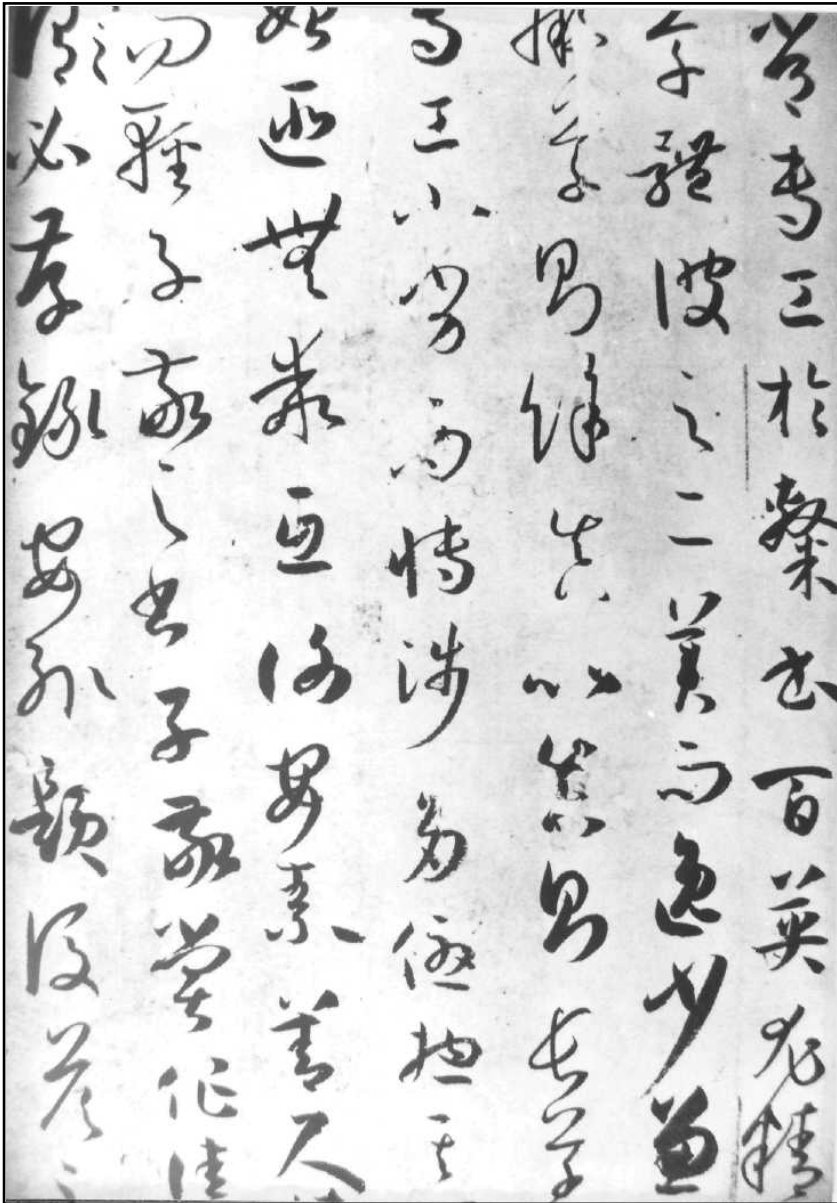 常專工於隸書百英尤精
草體彼之二美而逸少兼
擬草則餘真比真則長草
專工小劣而博涉多優總其
始匪無乖互謝安素善尺
而輕子敬之書子敬嘗作佳
之謂必存錄安輒題後答之